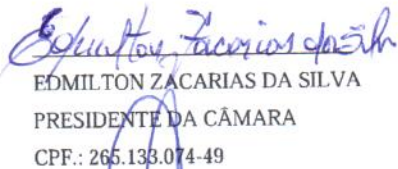 Edmilton Zacarias da Silva
EDMILTON ZACARIAS DA SILVA
PRESIDENTE DA CÂMARA
CPF.: 265.133.074-49